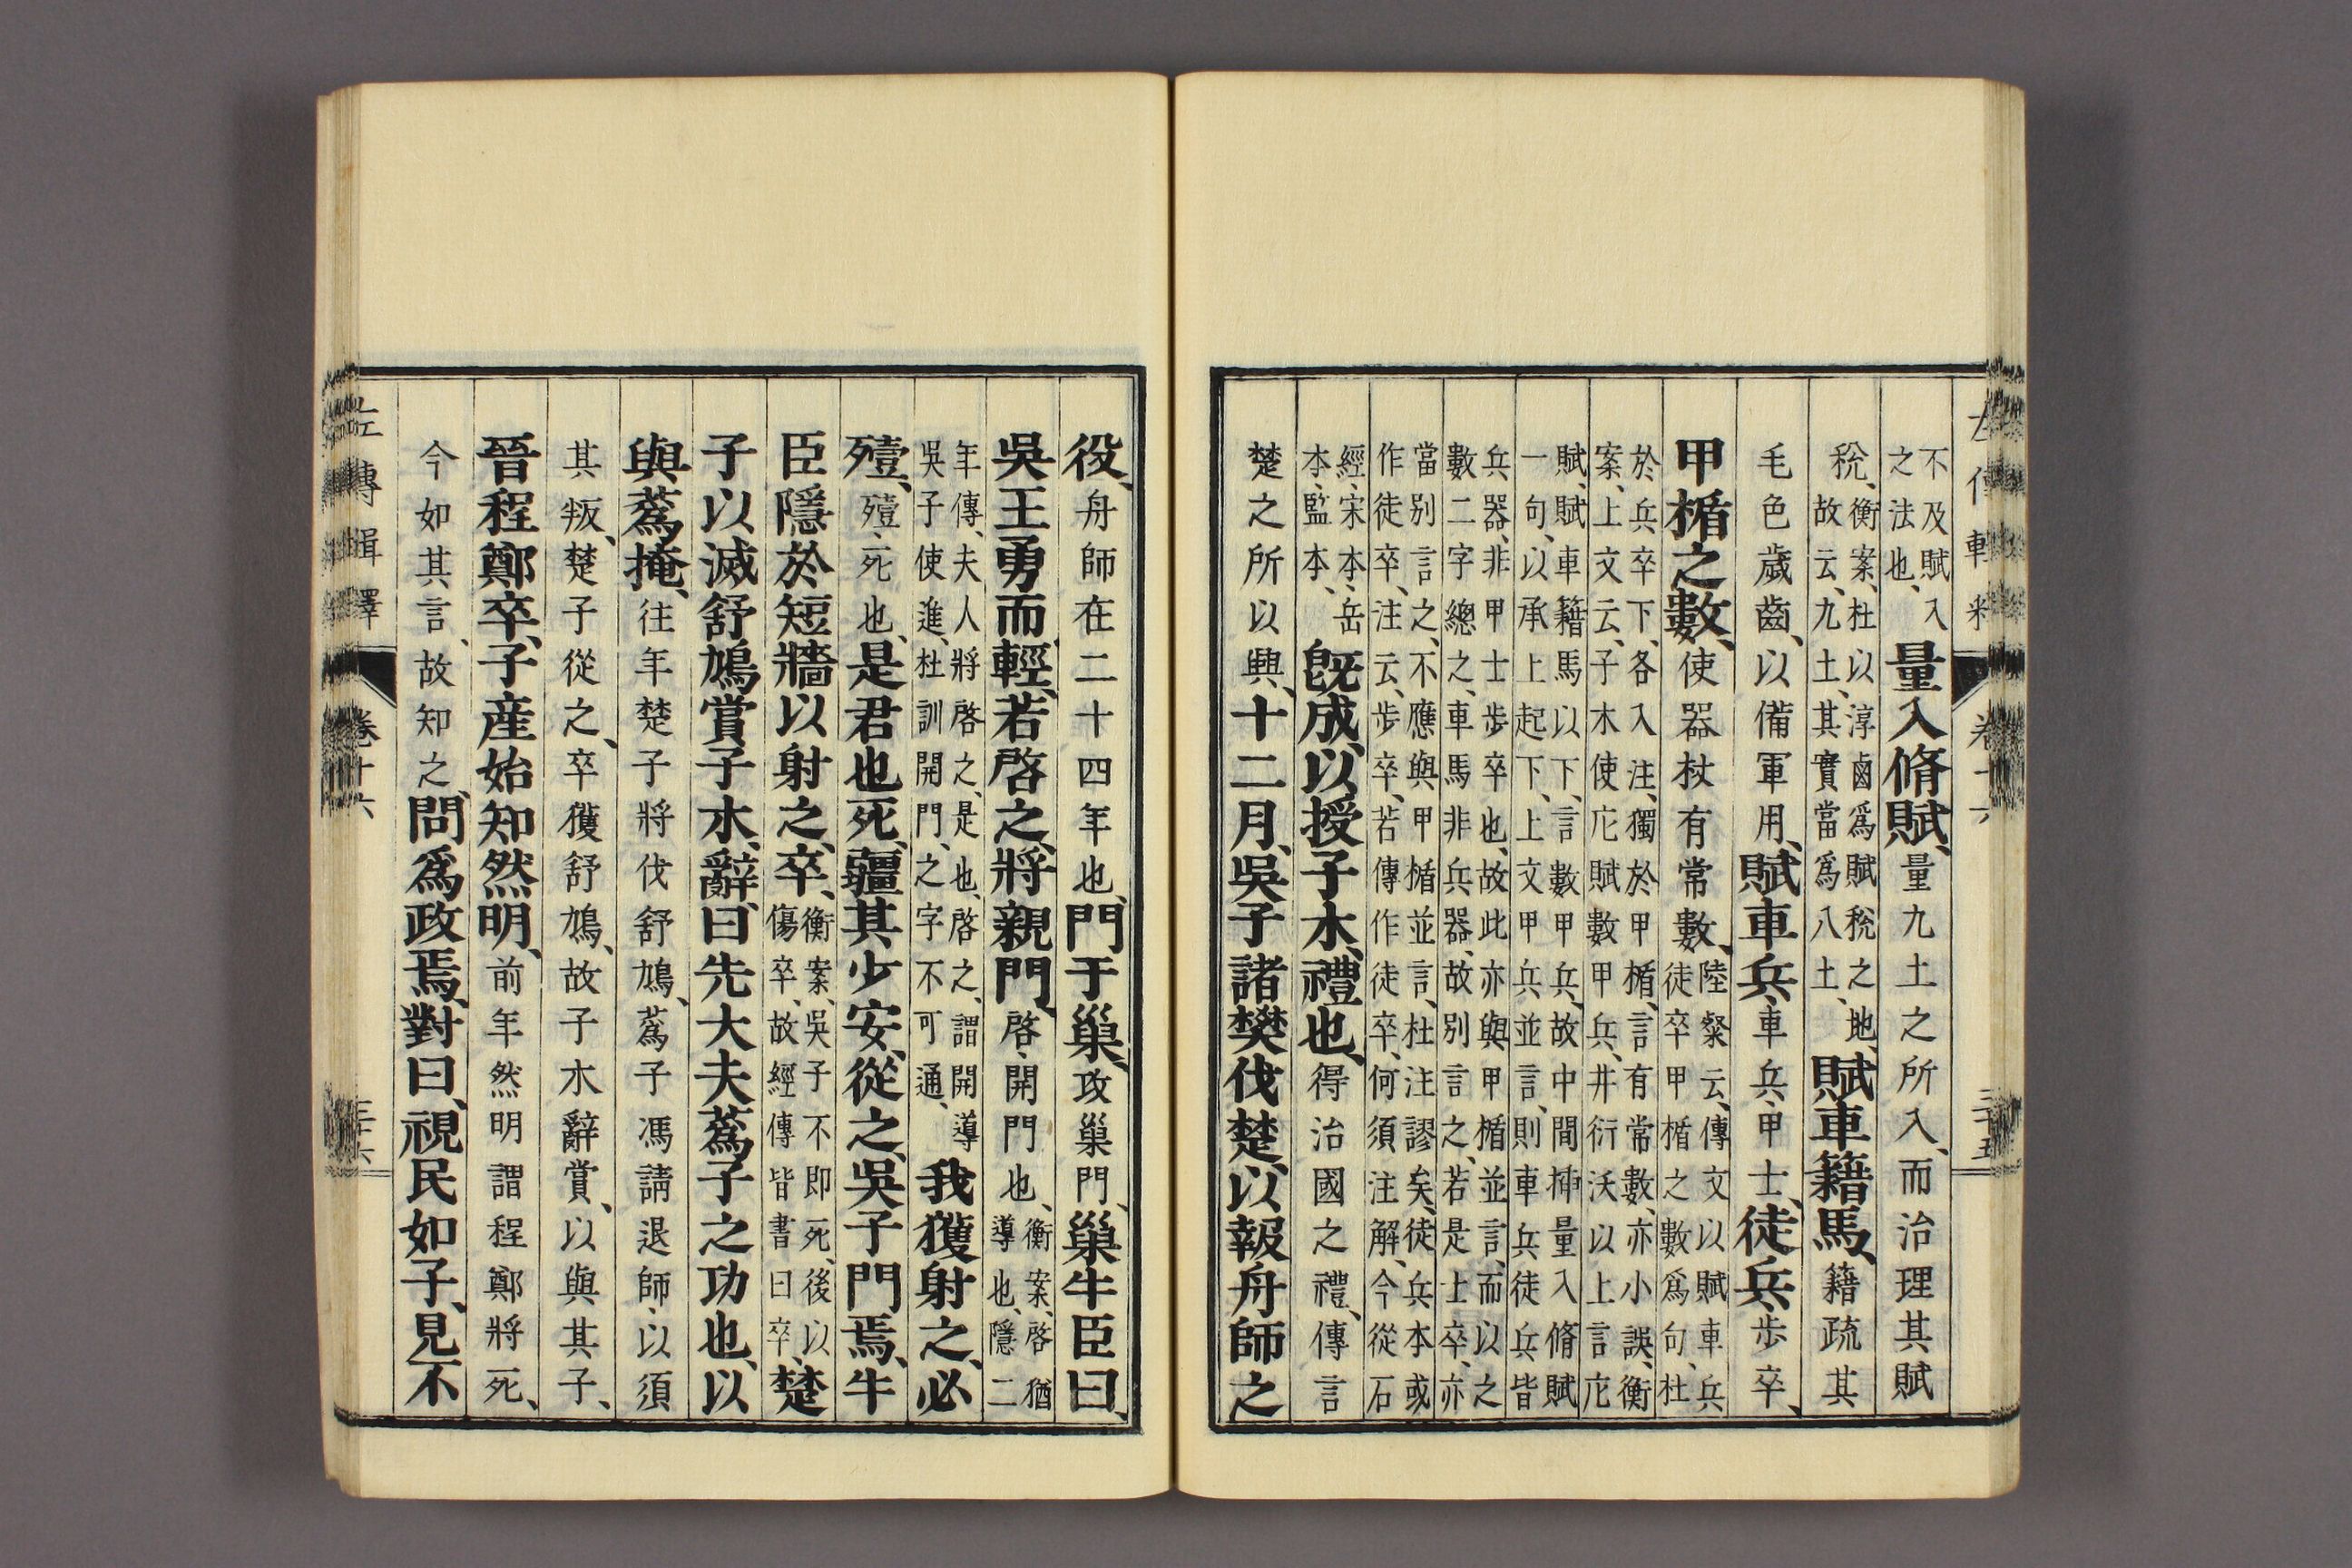 不及賦入
之法也、
量入脩賦、量九土之所入、而治理其賦
税、衡案、杜以淳鹵爲賦税之地、
故云、九土、其實當爲八土、
賦車籍馬、籍疏其
毛色歲齒、以備軍用、賦車兵、車兵、甲士、徒兵、步卒、
甲楯之數、使器杖有常數、陸粲云、傳文以賦車兵
徒卒甲楯之數爲句、杜
於兵卒下、各入注、獨於甲楯、言有常數、亦小誤、衡
案、上文云、子木使庀賦數甲兵、井衍沃以上言庀
賦、賦車籍馬以下、言數甲兵、故中間挿量入脩賦
一句、以承上起下、上文甲兵並言、則車兵徒兵皆
兵器、非甲士步卒也、故此亦與甲楯並言、而以之
數二字總之、車馬非兵器、故別言之、若是士卒、亦
當別言之、不應與甲楯並言、杜注謬矣、徒兵本或
作徒卒、注云、步卒、若傳作徒卒、何須注解、今從石
經、宋本、岳
本、監本、
既成、以授子木、禮也、得治國之禮、傳言
楚之所以興、十二月、吳子諸樊伐楚、以報舟師之
役、舟師在二十四年也、門于巢、攻巢門、巢牛臣曰、
吳王勇而輕、若啓之、將親門、啓、開門也、衡案、啓猶
導也、隱二
年傳、夫人將啓之、是也、啓之、謂開導
吳子使進、杜訓開門、之字不可通、
我獲射之、必
殪、殪、死也、是君也死、疆其少安、從之、吳子門焉、牛
臣隱於短牆以射之、卒、衡案、吳子不即死、後以
傷卒、故經傳皆書曰卒、
楚
子以滅舒鳩賞子木、辭、曰、先大夫蔿子之功也、以
與蔿掩、往年楚子將伐舒鳩、蔿子馮請退師、以須
其叛、楚子從之、卒獲舒鳩、故子木辭賞、以與其子、
晉程鄭卒、子產始知然明、前年然明謂程鄭將死、
今如其言、故知之、問爲政焉、對曰、視民如子、見不
左傳輯釋
卷十六